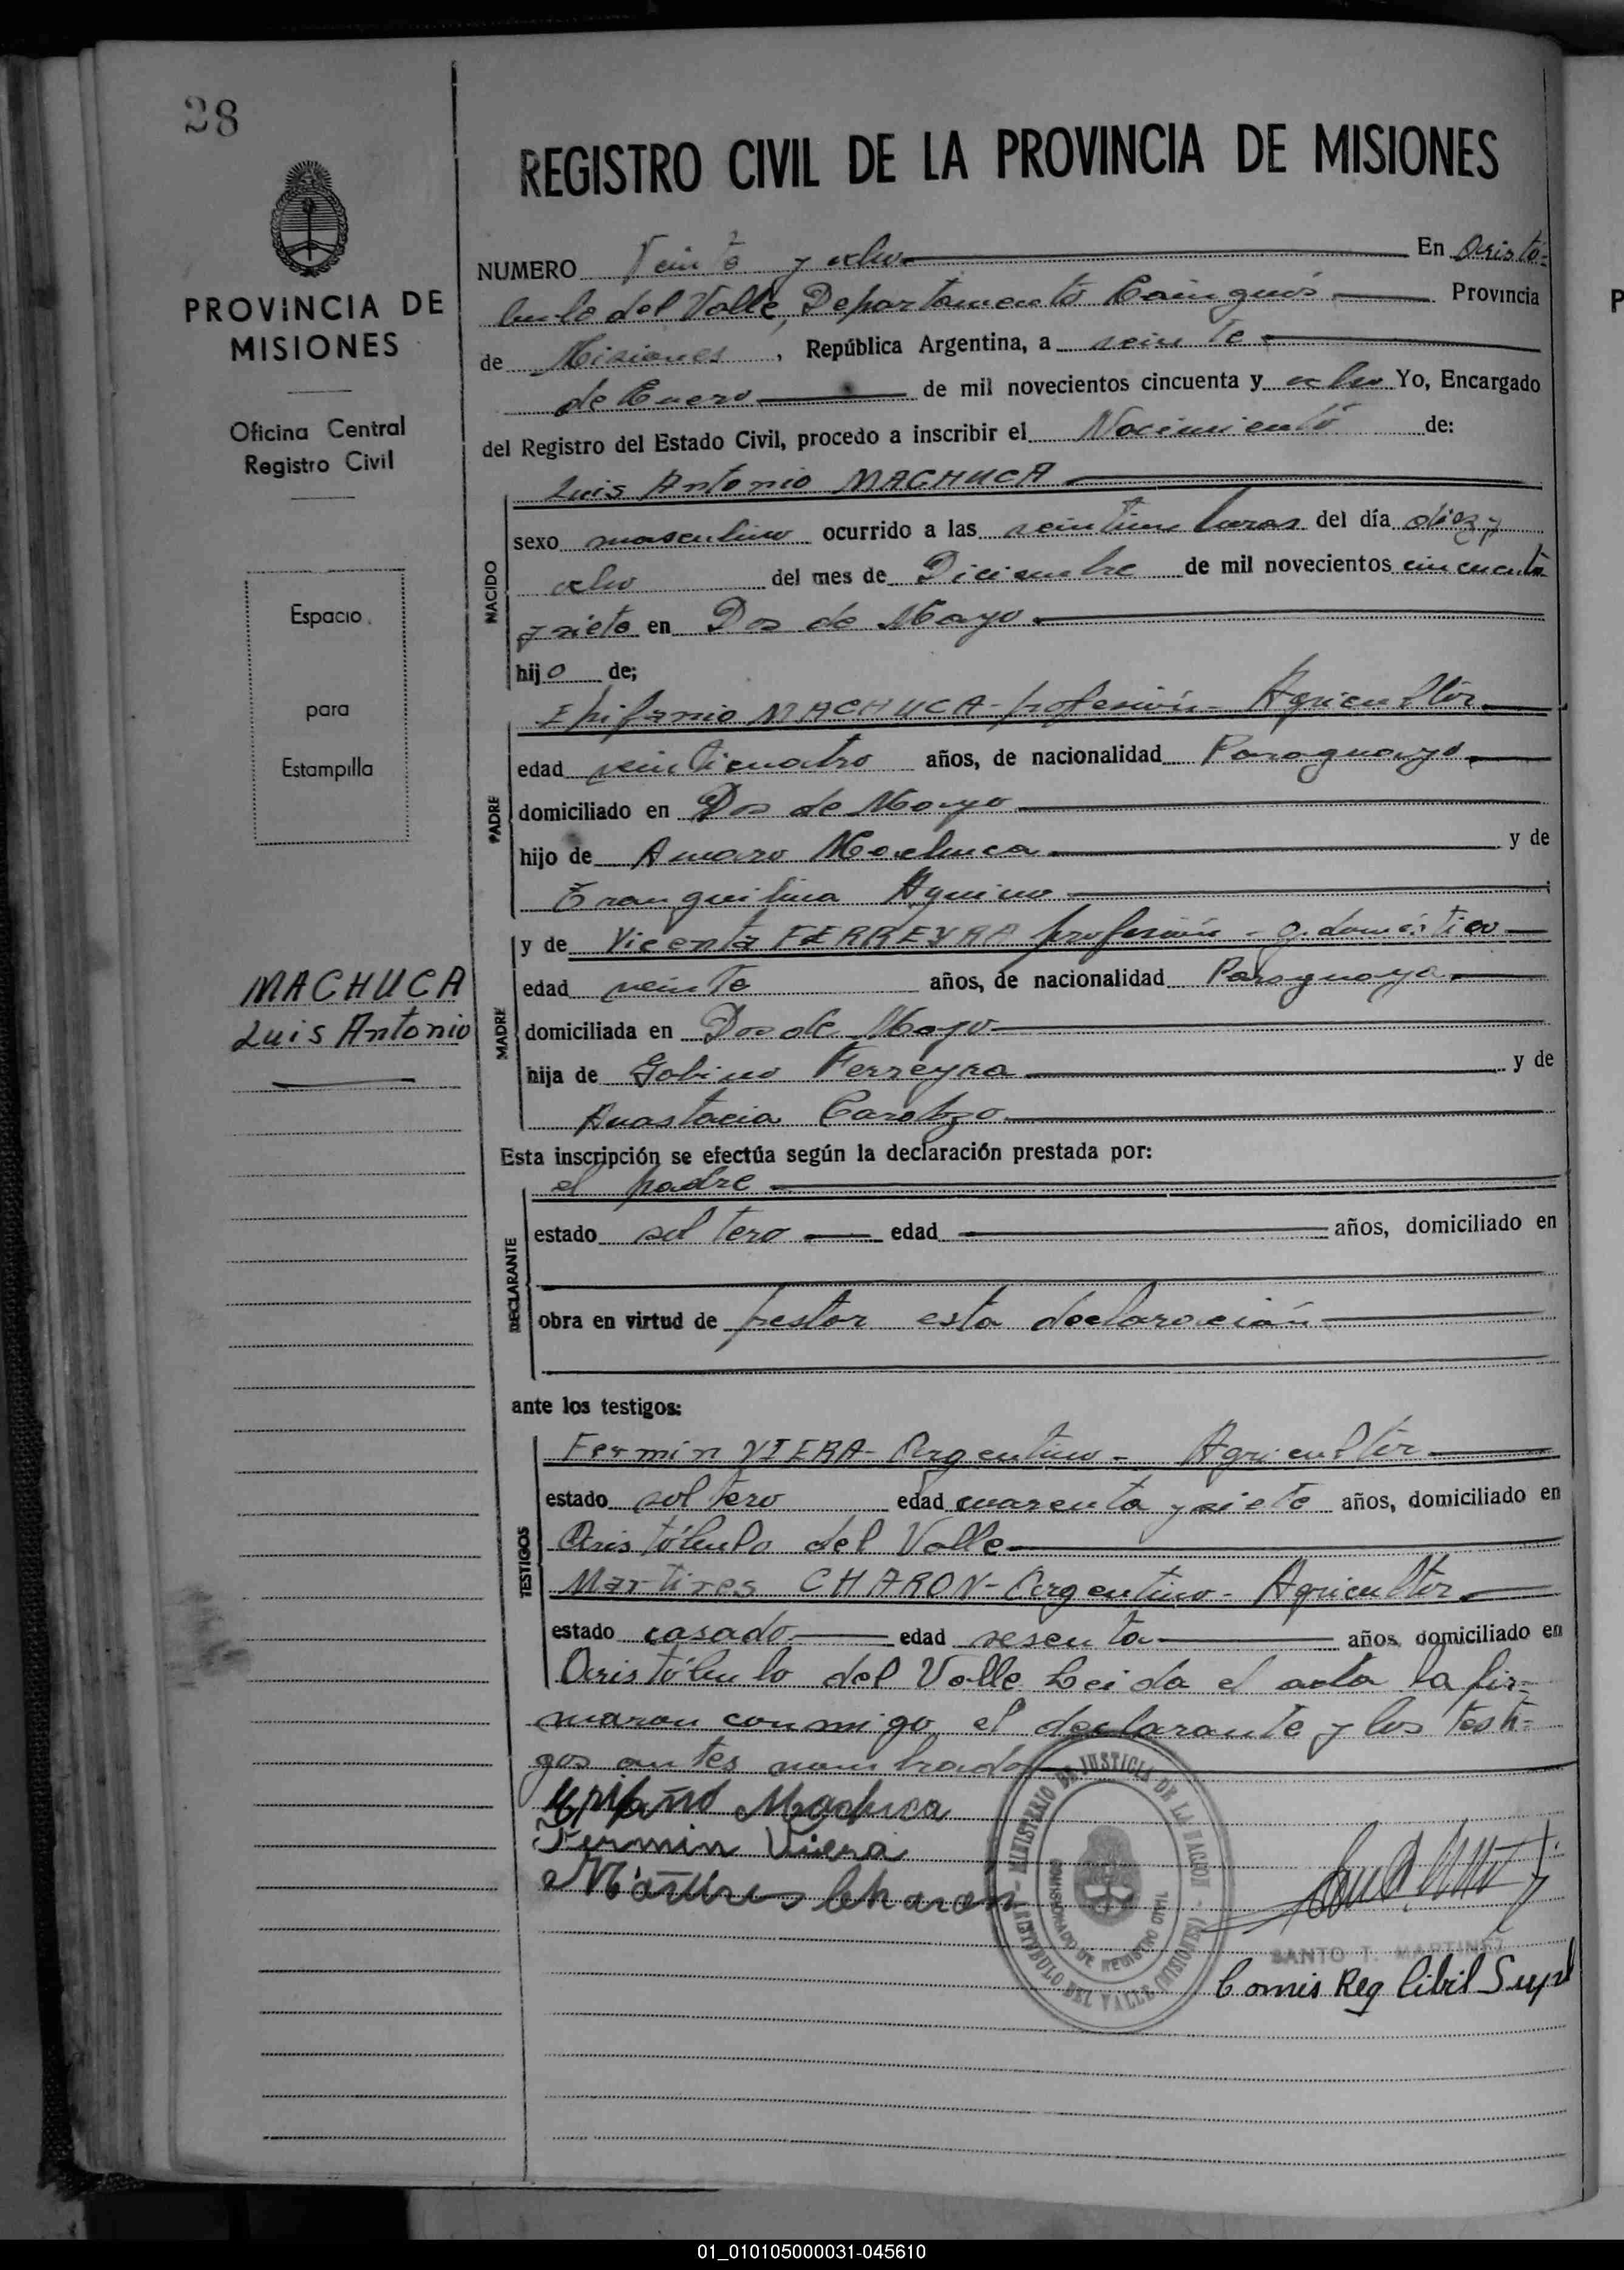 28
REGISTRO CIVIL DE LA PROVINCIA DE MISIONES
PROVINCIA DE
MISIONES
Oficina Central
Registro Civil
Espacio
para
Estampilla
MACHUCA
Luis Antonio
NUMERO Veinte y ocho En Aristó-
bulo del Valle, Departamento Cainguás Provincia
de Misiones, República Argentina, a veinte
de Enero de mil novecientos cincuenta y ocho Yo, Encargado
del Registro del Estado Civil, procedo a inscribir el Nacimiento de:
Luis Antonio MACHUCA
NACIDO
sexo masculino ocurrido a las veintiun horas del día diez y
ocho del mes de Diciembre de mil novecientos cincuenta
y siete en Dos de Mayo
hijo de;
PADRE
Epifanio MACHUCA - profesión - Agricultor
edad veinticuatro años, de nacionalidad Paraguayo
domiciliado en Dos de Mayo
hijo de Amaro Machuca y de
Tranquilina Aquino
MADRE
y de Vicenta FERREYRA profesión - q. doméstico
edad veinte años, de nacionalidad Paraguaya
domiciliada en Dos de Mayo
hija de Gabino Ferreyra y de
Anastacia Cardozo
Esta inscripción se efectúa según la declaración prestada por:
DECLARANTE
el padre
estado soltero edad años, domiciliado en
obra en virtud de prestar esta declaración
ante los testigos:
TESTIGOS
Fermin VIERA - Argentino - Agricultor
estado soltero edad cuarenta y siete años, domiciliado en
Aristóbulo del Valle
Martires CHARON - Argentino - Agricultor
estado casado edad sesenta años, domiciliado en
Aristóbulo del Valle Leida el acta la fir-
maron conmigo el declarante y los testi-
gos antes nombrados
Epifanio Machuca
Fermin Viera
Martires Charon
MINISTERIO DE JUSTICIA DE LA NACION
ARISTOBULO DEL VALLE (MISIONES)
REGISTRO CIVIL
SANTO T. MARTINEZ
Comis Reg Cibil Supl
01_010105000031-045610